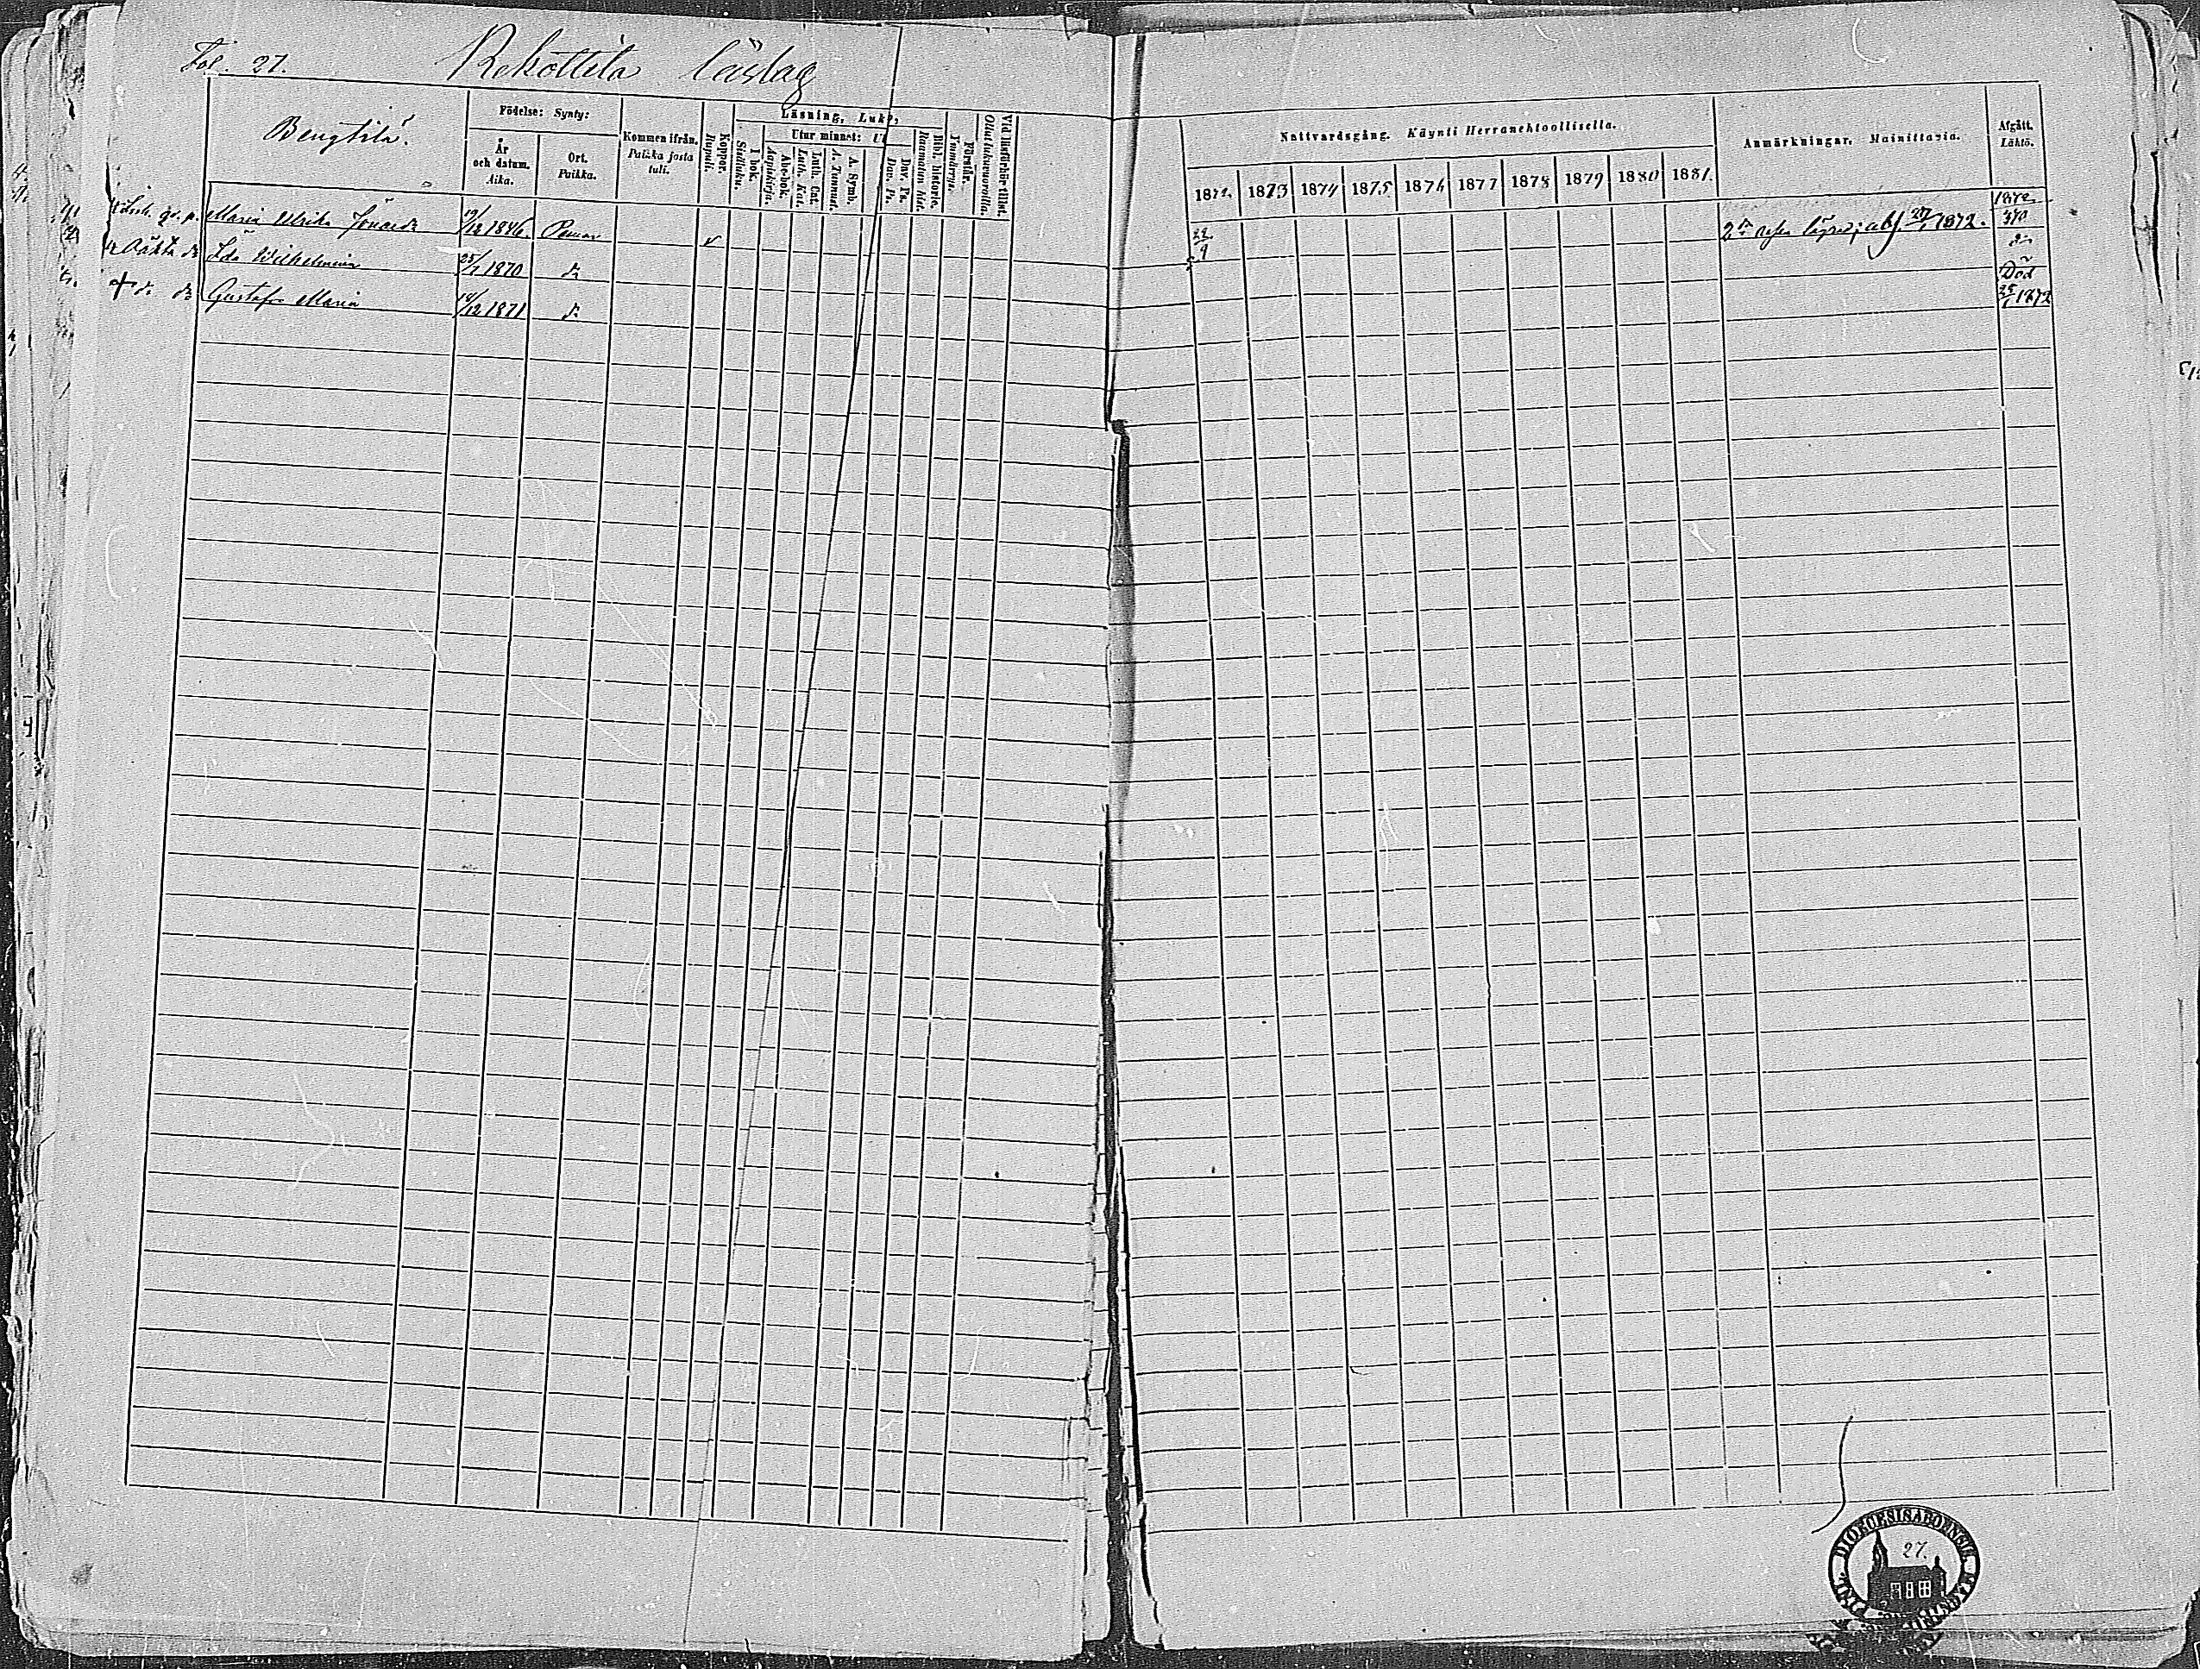 Fol. 27. Rekottila läslag
Bengtilä.
Födelse: Synty:
År och datum. Aika.
Ort. Paikka.
Kommen ifrån. Paikka josta tuli.
Koppor. Rupuli.
Läsning, Luku,
I bok. Sisäluku.
Utur minnet:
Abc-bok. Aapiskirja.
Luth. Cat. Luth. Kat.
A. Symb. A. Tunnust.
Dav. Ps. Dav. Ps.
Bibl. historie. Raamatun hist.
Förstår. Ymmärrys.
Vid läsförhör tillst. Ollut lukuvuoroilla.
Nattvardsgång. Käynti Herranehtoollisella.
1872. 1873 1874 1875. 1876 1877 1878 1879 1880 1881.
Anmärkningar. Mainittavia.
Afgått. Lähtö.
Maria Ulrika 19/12 1846. Pemar
22/9
1872.
1872
370
Ida Wilhelmina 25/1 1870 do
do
+ do do Gustafva Maria 14/12 1871 do
Död
25/1 1872
DIOECESIS ABOENSIS
27.